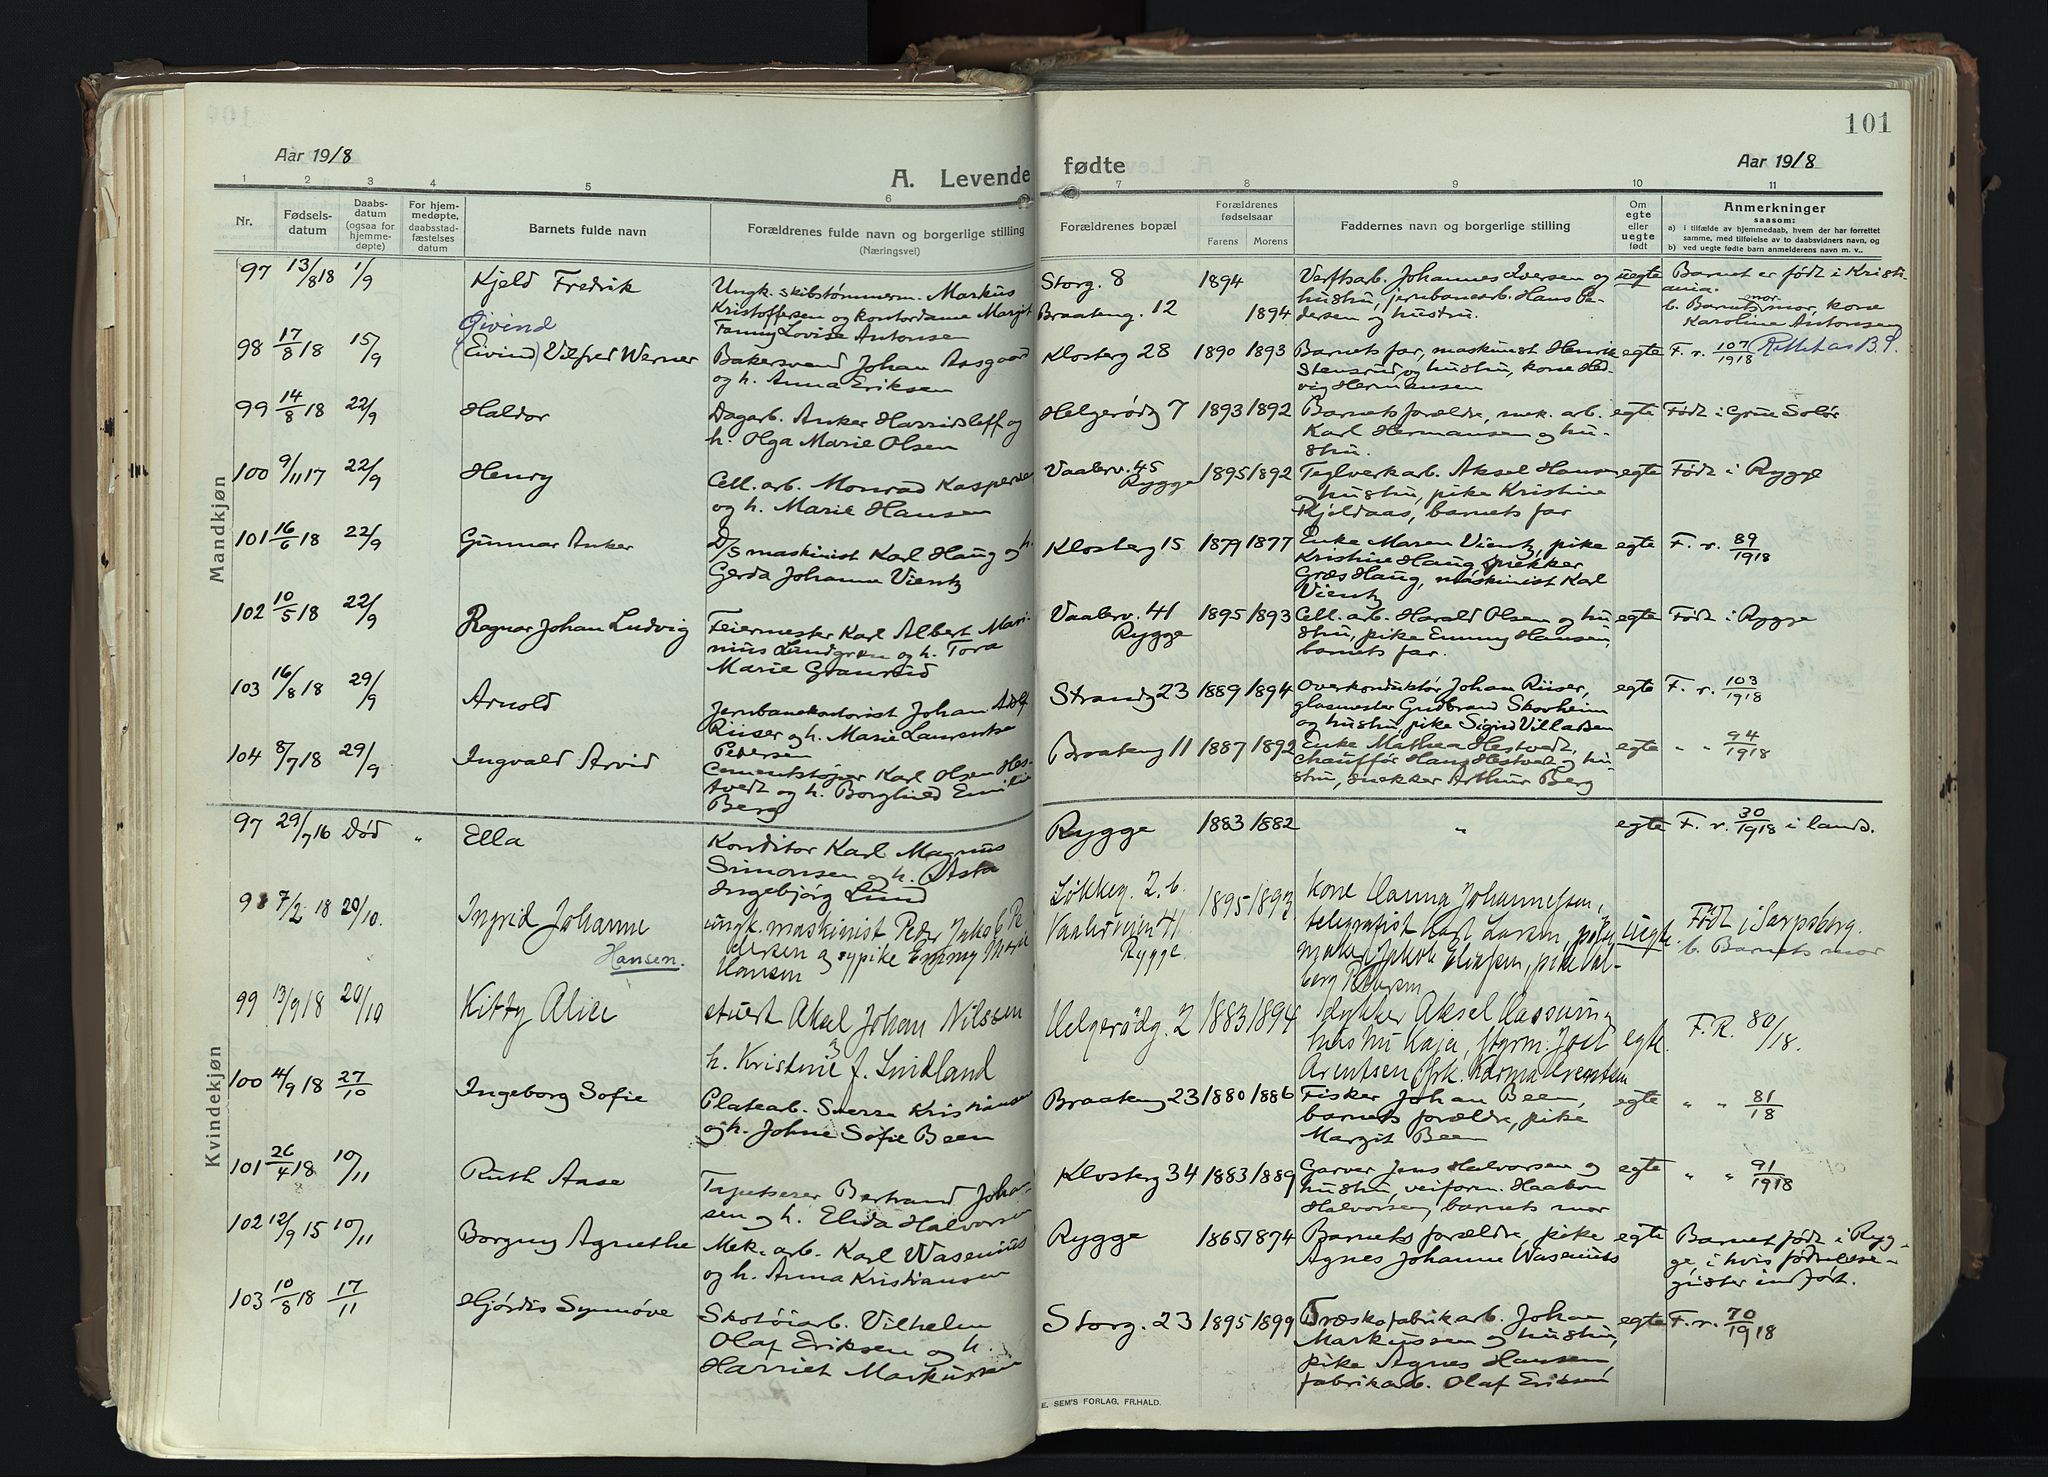 101
Aar 1918
A. Levende
fødte
Aar 1918
1 2 3 4 5 6 7 8 9 10 11
Nr.
Fødsels-
datum
Daabs-
datum
(ogsaa for
hjemme-
døpte)
For hjem-
medøpte,
daabsstad-
fæstelses
datum
Barnets fulde navn
Forældrenes fulde navn og borgerlige stilling
(Næringsvei)
Forældrenes bopæl
Forældrenes
fødselsaar
Farens Morens
Faddernes navn og borgerlige stilling
Om
egte
eller
uegte
født
Anmerkninger
saasom:
a) i tilfælde av hjemmedaab, hvem der har forrettet
samme, med tilføielse av to daabsvidners navn, og
b) ved uegte fødte barn anmelderens navn m. v..
Mandkjøn
97 13/8 18 1/9 Kjeld Fredrik
Ungk. skibstømmerm. Markus
Kristoffersen og kontordame Margit
Fanny Lovise Antonsen
Storg. 8 1894
Braateng. 12 1894
Verftsarb. Johannes Iversen og
hustru, jernbanearb. Hans Pe-
dersen og hustru.
uegte
Barnet er født i Kristi-
ania.
b. Barnets mormor, kone
Karoline Antonsen
98 17/8 18 15/9 Øivind
(Eivind) Vilfred Werner
Bakersvend Johan Aasgaard
og h. Anna Eriksen
Klosterg 28 1890 1893
Barnets far, maskinist Henrik
Stensrud og hustru, kone Hed-
vig Hermansen
egte F. r. 107/1918 Rettet as B.P.
99 14/8 18 22/9 Haldor
Dagarb. Anker Harridsleff og
h. Olga Marie Olsen
Helgerødg 7 1893 1892
Barnets forældre, mek. arb.
Karl Hermansen og hu-
stru.
egte Født i Grue Solør
100 9/11 17 22/9 Henry
Cell. arb. Monrad Kaspersen
og h. Marie Hansen
Vaalerv. 45
Rygge 1895 1892
Teglverkarb. Aksel Hansen
og hustru, pike Kristine
Kjeldaas, barnets far
egte Født i Rygge
101 16/6 18 22/9 Gunnar Anker
D/S maskinist Karl Haug og h.
Gerda Johanne Vientz
Klosterg 15 1879 1877
Enke Maren Vientz, pike
Kristine Haug, snekker
Græs Haug, maskinist Karl
Vientz
egte F. r. 89/1918
102 10/5 18 22/9 Ragnar Johan Ludvig
Feiermester Karl Albert Mari-
nius Lundgren og h. Tora
Marie Granrud
Vaalerv. 41
Rygge 1895 1893
Cell. arb. Harald Olsen og hu-
stru, pike Emmy Hansen,
barnets far.
egte Født i Rygge
103 16/8 18 29/9 Arnold
Jernbanekontorist Johan Adolf
Riiser og h. Marie Laurentse
Pedersen
Strandg 23 1889 1894
Overkonduktør Johan Riiser,
glasmester Gudbrand Skovheim
og hustru, pike Sigrid Villadsen
egte F. r. 103/1918
104 8/7 18 29/9 Ingvald Arvid
Cementstøper Karl Olsen Hes-
tvedt og h. Borghild Emilie
Berg
Braateng 11 1887 1892
Enke Mathea Hestvedt,
chauffør Hans Hestvedt og hu-
stru, snekker Arthur Berg
egte " " 94/1918
Kvindekjøn
97 29/7 16 Død " Ella
Konditor Karl Magnus
Simonsen og h. Asta
Ingebjørg Lund
Rygge 1883 1882 " egte F. r. 30/1918 i lands.
98 7/2 18 20/10. Ingrid Johanne
Hansen.
ungk. maskinist Peder Jakob Pe
dersen og pike Emmy Marie
Hansen
Løkkeg. 2. b.
Vaalerveien 41
Rygge. 1895 1893
kone Hanna Johannessen,
telegrafist Karl Larsen,
maker Jakob Eliassen, pike Val-
borg Pedersen
uegte.
Født i Sarpsborg.
b. Barnets mor
99 13/9 18 20/10 Kitty Alice
stuert Aksel Johan Nilssen
h. Kristine f. Lindland
Helgerødg. 2 1883 1894
dykker Aksel Aassum og
hustru Kaja, styrm. Joel
Arentsen, frk. Karma Arentsen
egte. F. R. 80/18.
100 4/9 18 27/10 Ingeborg Sofie
Platearb. Sverre Kristiansen
og h. Johne Sofie Been
Braateng 23 1880 1886
Fisker Johan Been,
barnets forældre, pike
Margit Been
egte " " 81/18
101 26/4 18 10/11 Ruth Aase
Tapetserer Bertrand Johan-
sen og h. Elida Halvorsen
Klosterg 34 1883 1889
Garver Jens Halvorsen og
hustru, veiform. Haakon
Halvorsen, barnets mor
egte " " 91/1918
102 12/9 15 10/11 Borgny Agnethe
Mek. arb. Karl Wasenius
og h. Anna Kristiansen
Rygge 1865 1874
Barnets forældre, pike
Agnes Johanne Wasenius
egte
Barnet født i Ryg-
ge, i hvis fødselsre-
gister indført.
103 10/8 18 17/11 Hjördis Synnøve
Skotøiarb. Vilhelm
Olaf Eriksen og h.
Harriet Markussen
Storg. 23 1895 1899
Træskofabrikarb. Johan
Markussen og hustru,
pike Agnes Hansen,
fabrikarb. Olaf Eriksen
egte F. r. 70/1918
E. SEM'S FORLAG, FR.HALD.